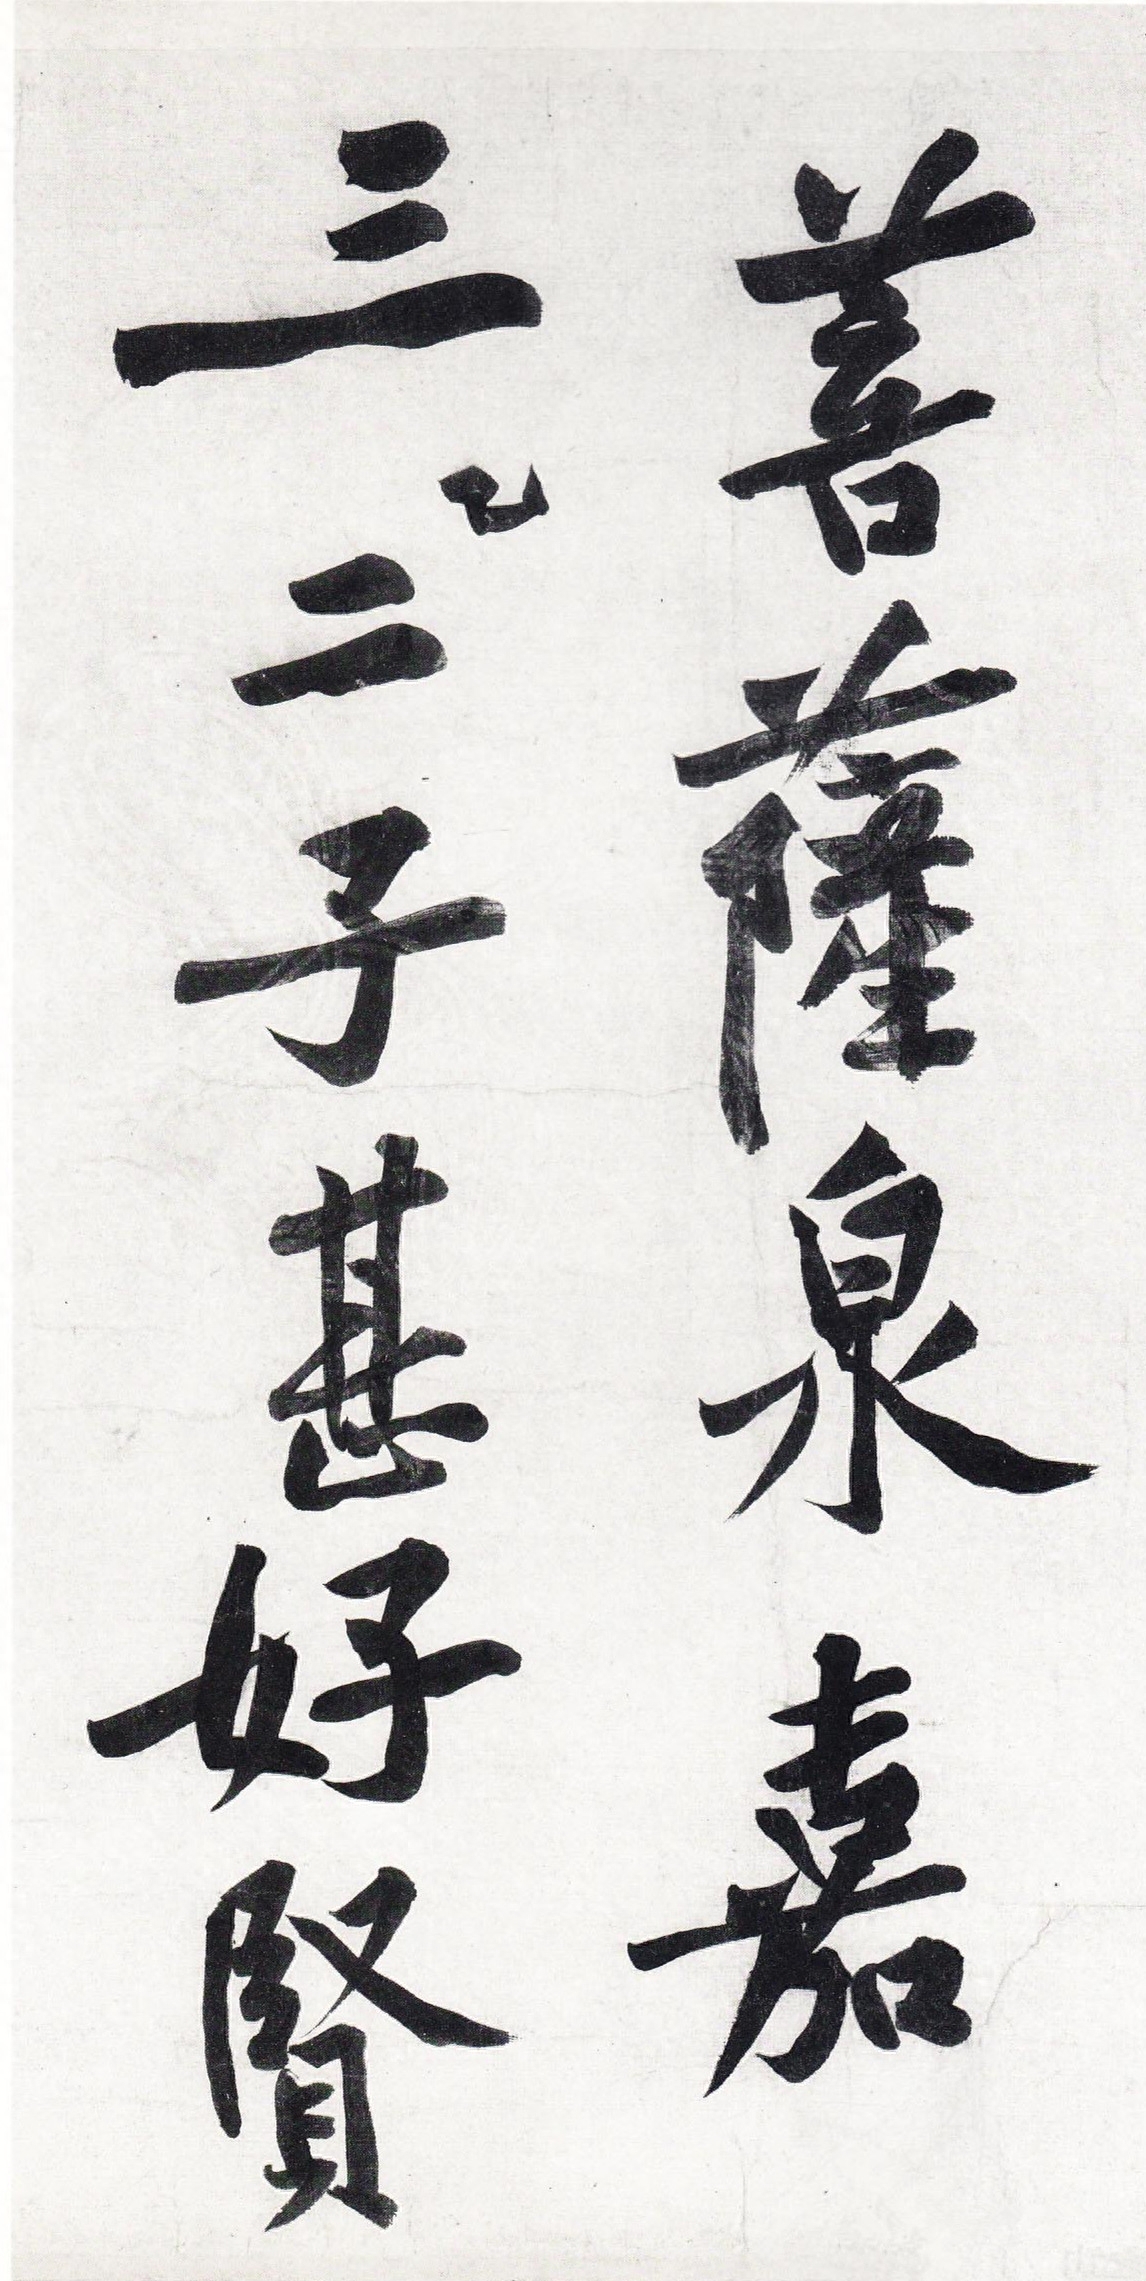 菩薩泉嘉
三二子甚好賢